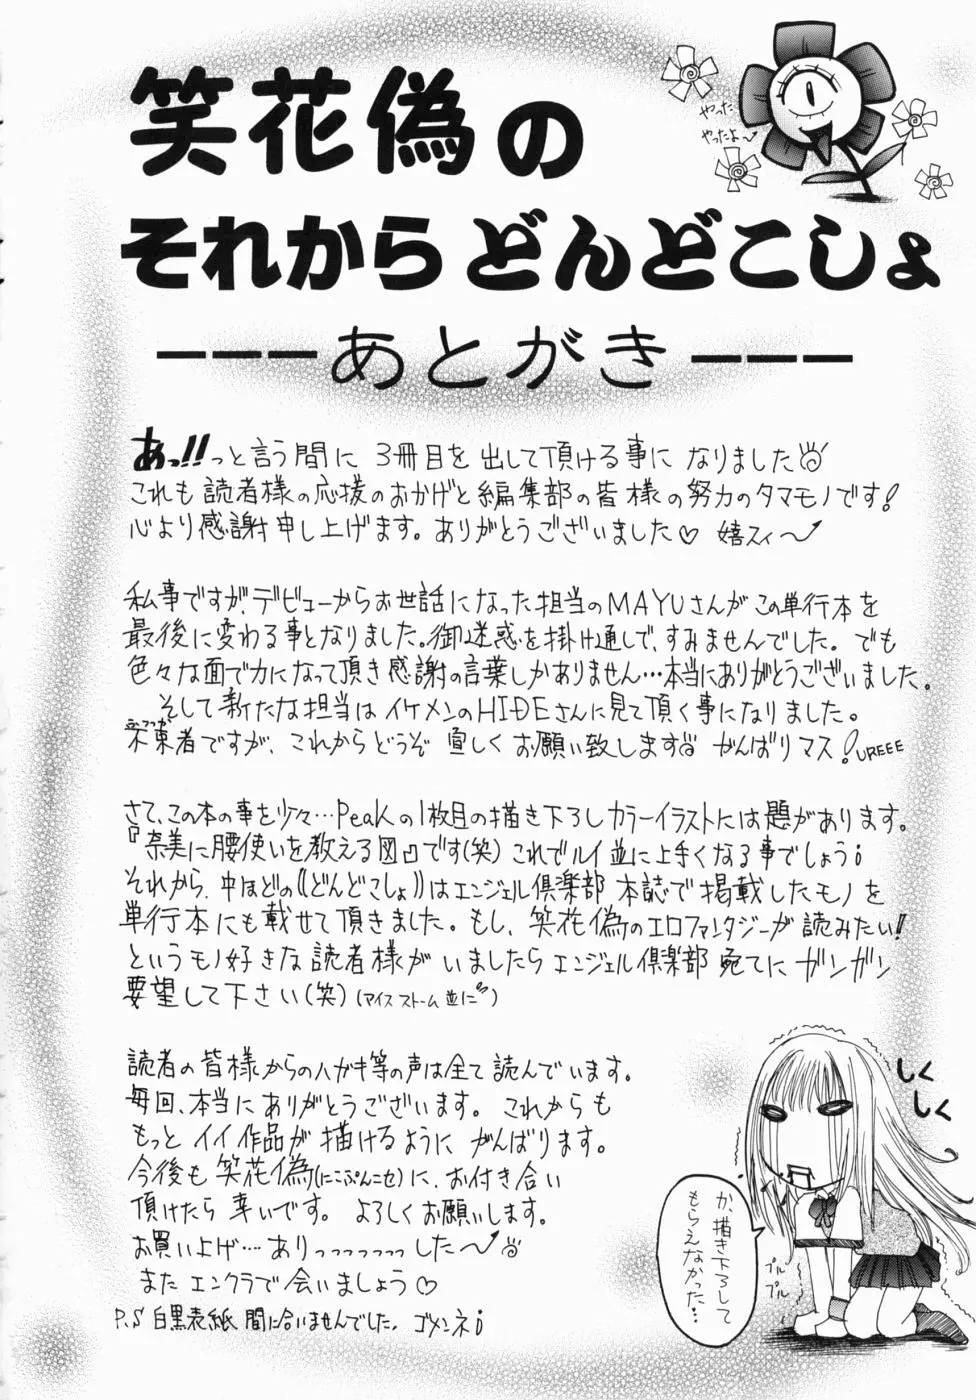 笑花偽の
それからどんどこしょ
やったー
やったよ〜
---あとがき---
あっ!!っと言う間に 3冊目を出して頂ける事になりました
これも読者様の応援のおかげと編集部の皆様の努力のタマモノです!
心より感謝申し上げます。ありがとうございました♡ 嬉スィ〜
私事ですが、デビューからお世話になった担当のMAYUさんがこの単行本を
最後に変わる事となりました。御迷惑を掛け通しで、すみませんでした。でも
色々な面で力になって頂き感謝の言葉しかありません…本当にありがとうございました。
そして新たな担当はイケメンのHIDEさんに見て頂く事になりました。
不束者ですが、これからどうぞ宜しくお願い致します がんばりマス! UREEE
さて、この本の事を少々…Peakの1枚目の描き下ろしカラーイラストには題があります。
『奈美に腰使いを教える図』です(笑) これでルイ並に上手くなる事でしょう!
それから、中ほどの《どんどこしょ》はエンジェル倶楽部 本誌で掲載したモノを
単行本にも載せて頂きました。もし、笑花偽のエロファンタジーが読みたい!!
というモノ好きな読者様がいましたらエンジェル倶楽部宛てにガンガン
要望して下さい(笑)(アイスストーム並に)
読者の皆様からのハガキ等の声は全て読んでいます。
毎回、本当にありがとうございます。これからも
もっとイイ作品が描けるようにがんばります。
今後も笑花偽(にこぷんニセ)に、お付き合い
頂けたら幸いです。よろしくお願いします。
お買い上げ…ありっっっっっっした〜
またエンクラで会いましょう♡
P.S 白黒表紙 間に合いませんでした。ゴメンネ!
しく
しく
か、描き下ろして
もらえなかった…
プル
プル